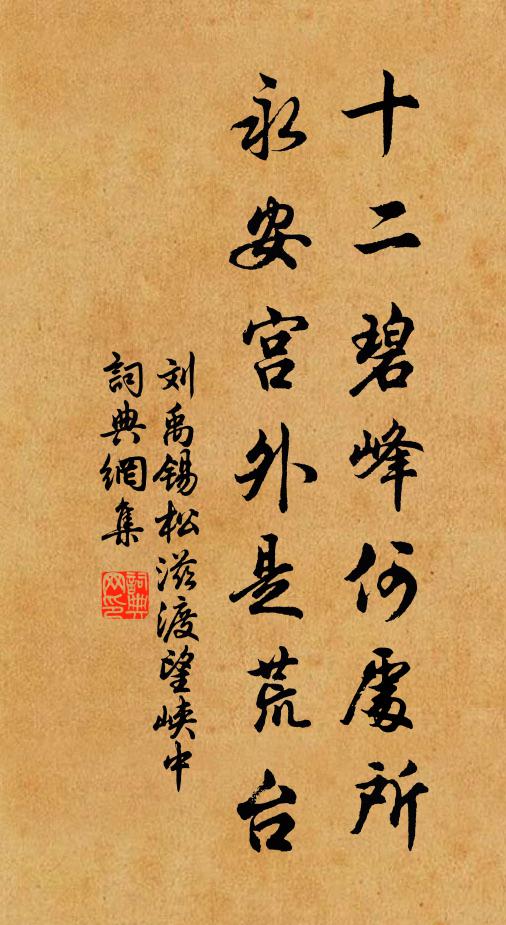 十二碧峰何處所
永安宫外是荒台
刘禹锡松滋渡望峡中
詞典網集
詞典网印